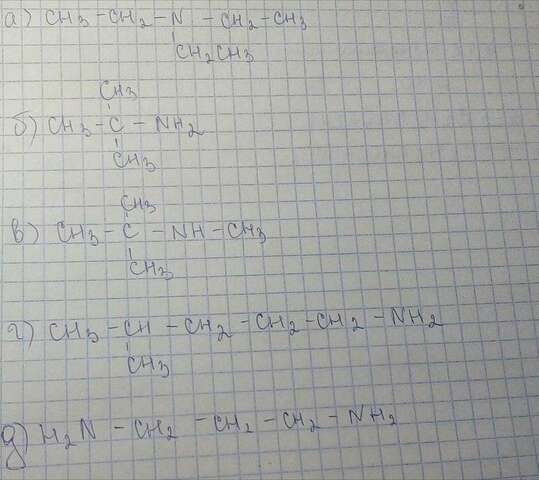 а) CH3 - CH2 - N - CH2 - CH3
CH2CH3
CH3
б) CH3 - C - NH2
CH3
CH3
в) CH3 - C - NH - CH3
CH3
г) CH3 - CH - CH2 - CH2 - CH2 - NH2
CH3
д) H2N - CH2 - CH2 - CH2 - NH2